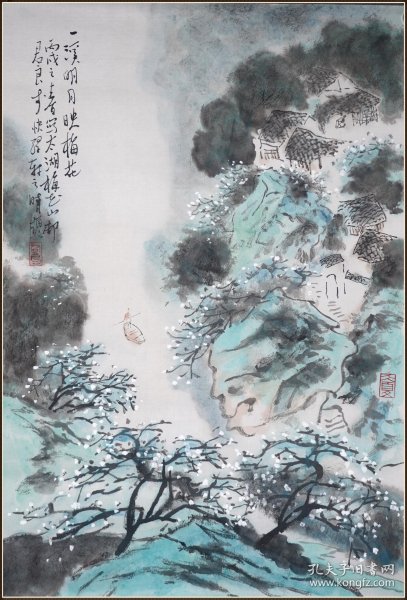 一溪明月映梅花
丙戌之春写太湖梅花山邨
君良于快
孔夫子旧书网
www.kongfz.com